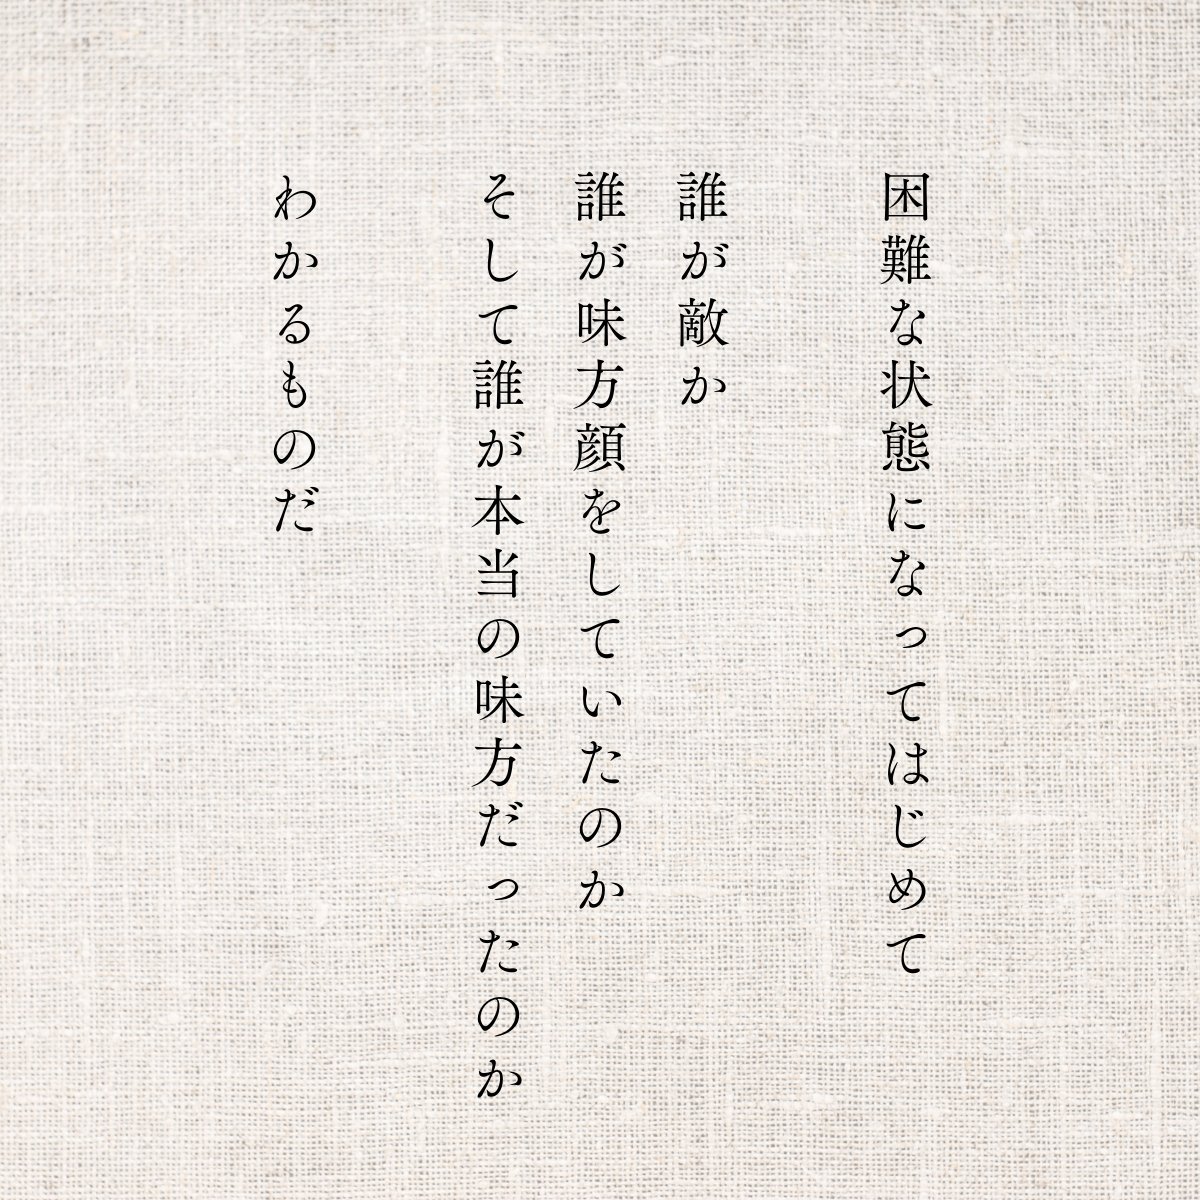 困難な状態になってはじめて
誰が敵か
誰が味方顔をしていたのか
そして誰が本当の味方だったのか
わかるものだ